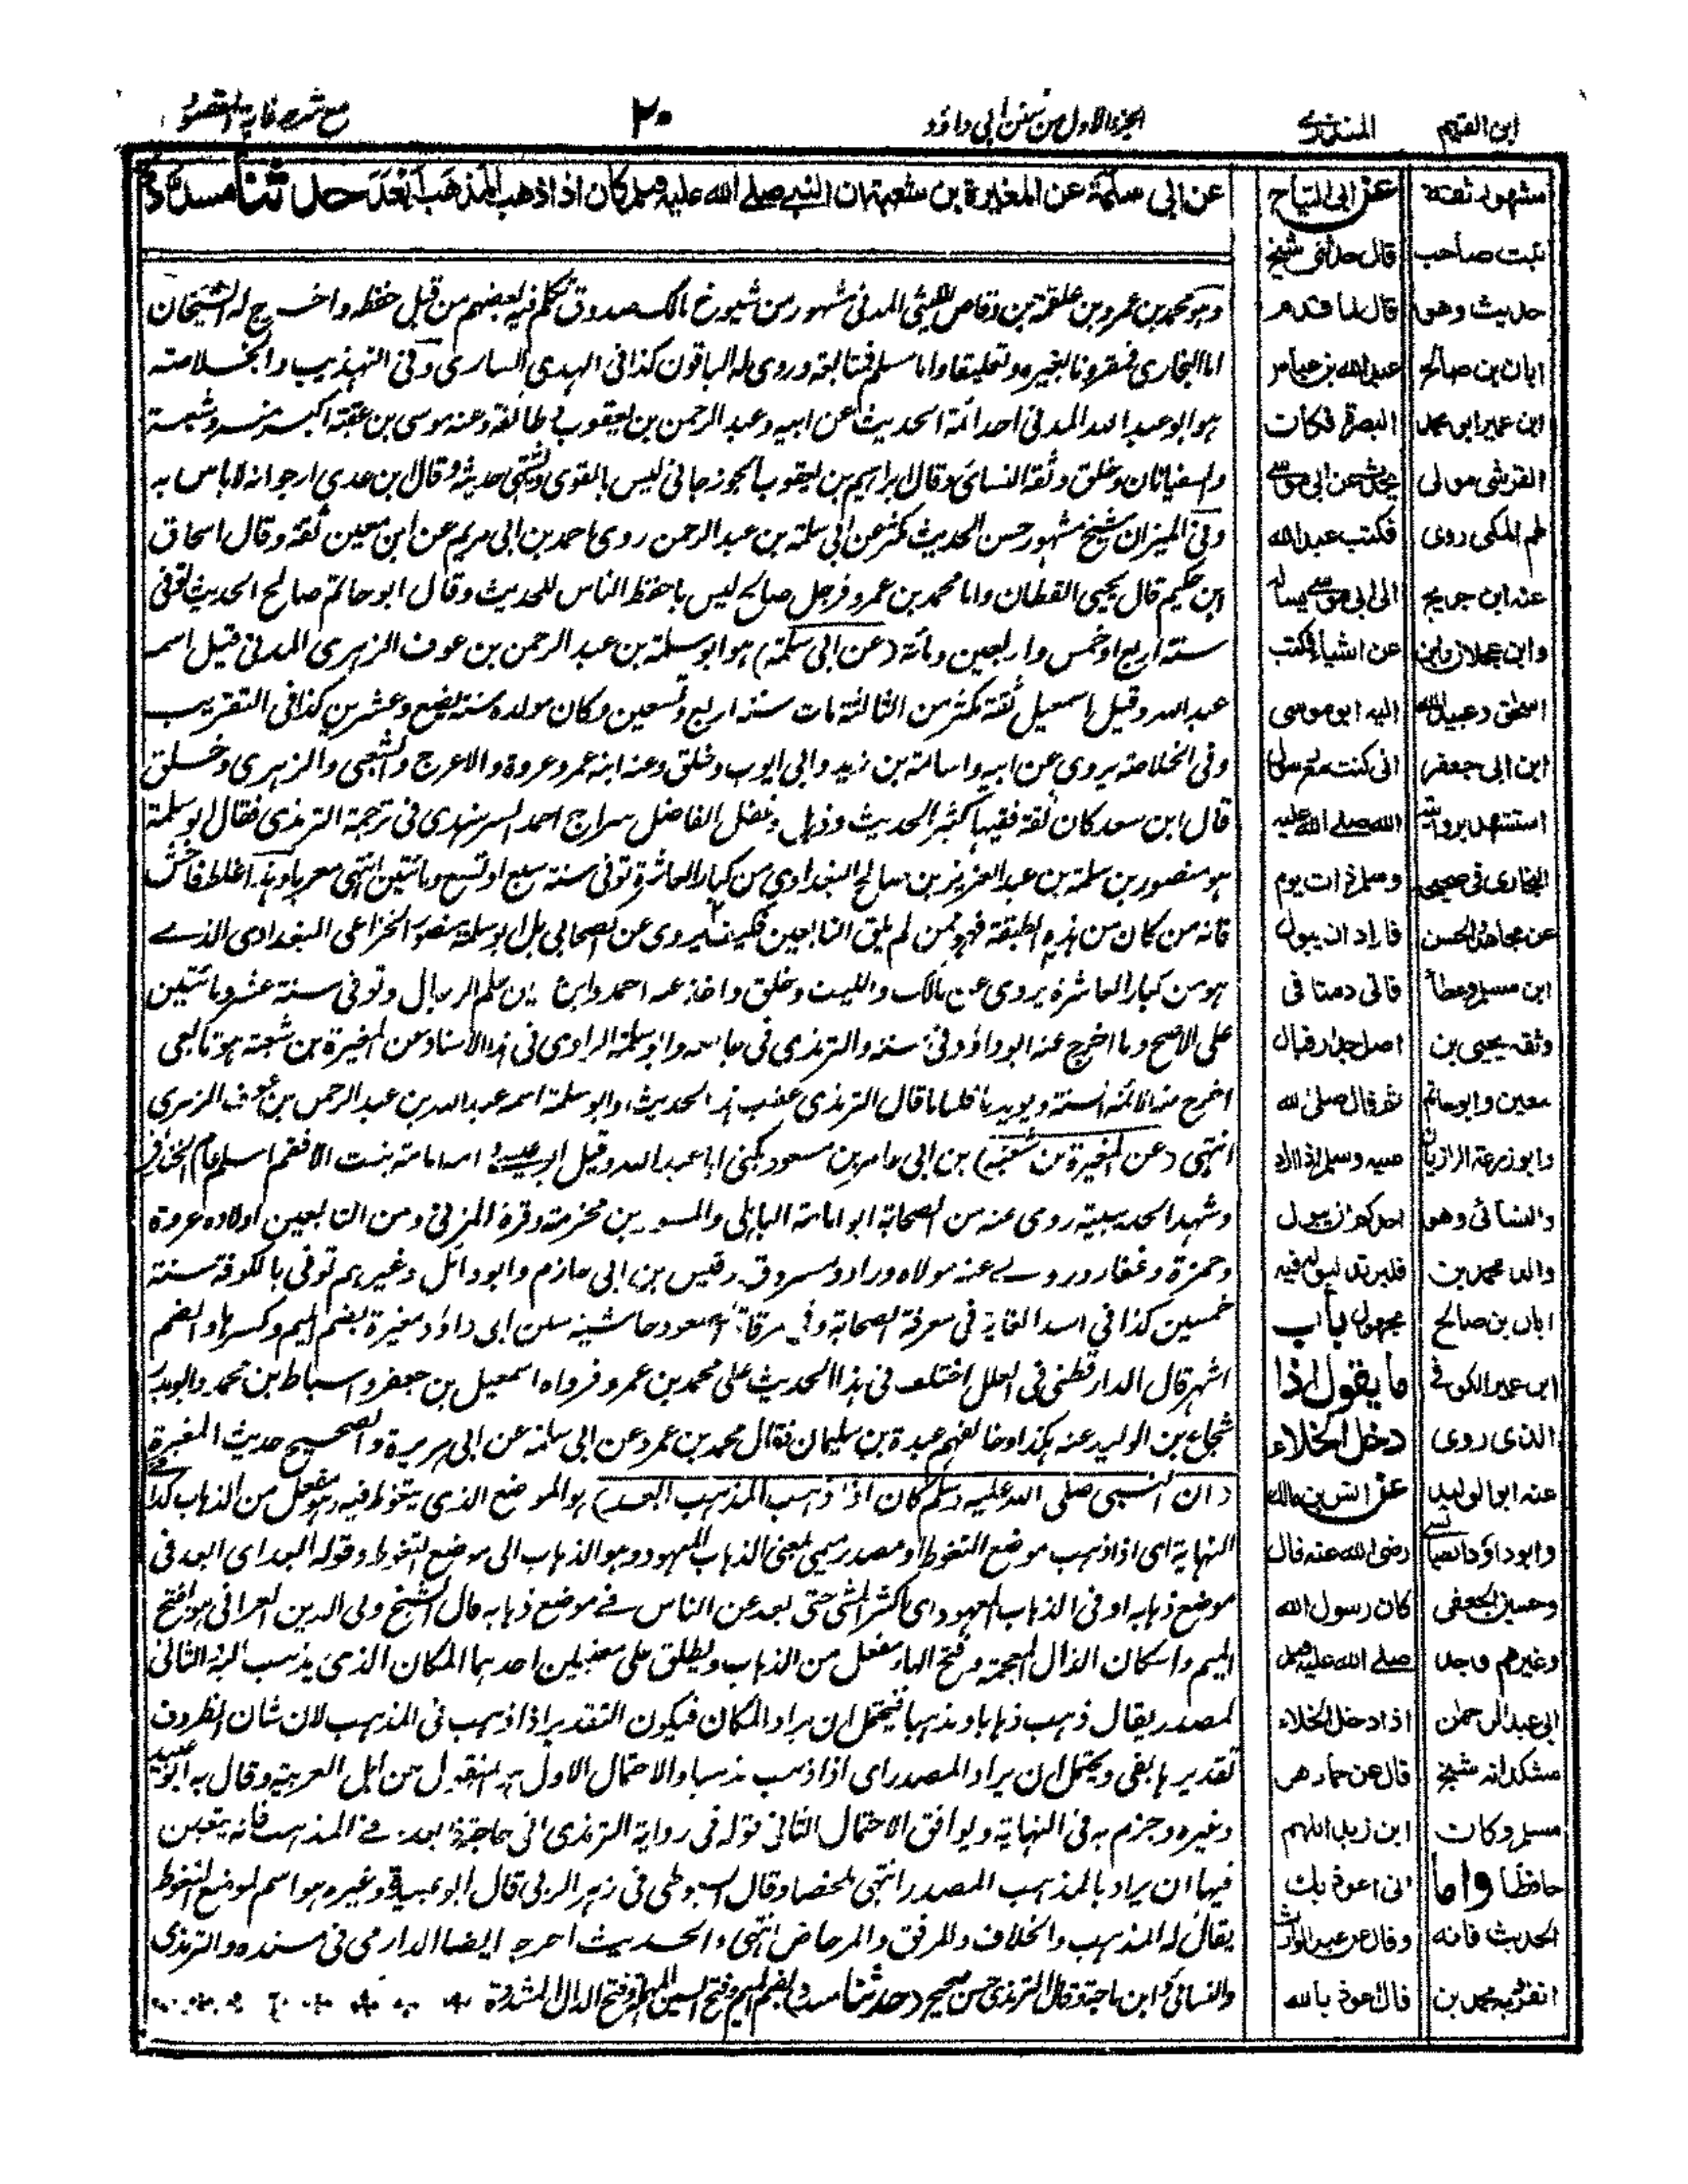 ابن القيم
المنذري
الجزء الاول من سنن ابي داؤد
٢٠
مع شرحه غاية المقصود
عن ابي سلمة عن المغيرة بن شعبة ان النبي صلى الله عليه وسلم كان اذا ذهب المذهب ابعد حدثنا مسدد
وهو محمد بن عمرو بن علقمة بن وقاص الليثي المدني مشهور من شيوخ مالك صدوق تكلم فيه بعضهم من قبل حفظه واخرج له الشيخان
اما البخاري فمقرونا بغيره وتعليقا واما مسلم فمتابعة وروى له الباقون كذا في الهدي الساري وفي التهذيب والخلاصة
هو ابو عبد الله المدني احد ائمة الحديث عن ابيه وعبد الرحمن بن يعقوب وطائفة وعنه موسى بن عقبة اكبر منه وشعبة
والسفيانان وخلق وثقه النسائي وقال ابراهيم بن يعقوب الجوزجاني ليس بالقوي ويشتهى حديثه وقال بن عدي ارجو انه لا باس به
وفي الميزان شيخ مشهور حسن الحديث مكثر عن ابي سلمة بن عبد الرحمن روى احمد بن ابي مريم عن ابن معين ثقة وقال اسحاق
ابن حكيم قال يحيى القطان واما محمد بن عمرو فرجل صالح ليس باحفظ الناس للحديث وقال ابو حاتم صالح الحديث توفي
سنة اربع او خمس واربعين ومائة (عن ابي سلمة) هو ابو سلمة بن عبد الرحمن بن عوف الزهري المدني قيل اسمه
عبد الله وقيل اسمعيل ثقة مكثر من الثالثة مات سنة اربع وتسعين وكان مولده سنة بضع وعشرين كذا في التقريب
وفي الخلاصة يروي عن ابيه واسامة بن زيد وابي ايوب وخلق وعنه ابنه عمر وعروة والاعرج والشعبي والزهري وخلق
قال ابن سعد كان ثقة فقيها كثير الحديث وذهل الفاضل سراج احمد السرهندي في ترجمة الترمذي فقال ابو سلمة
هو منصور بن سلمة بن عبد العزيز بن صالح البغدادي من كبار العاشرة توفي سنة سبع او تسع ومائتين انتهى معربا وهذا غلط فاحش
فانه من كان من هذه الطبقة فهو ممن لم يلق التابعين فكيف يروي عن الصحابي بل ابو سلمة منصور الخزاعي البغدادي الذي
هو من كبار العاشرة يروي عن مالك والليث وخلق واخذ عنه احمد وابن معين علم الرجال وتوفي سنة عشر ومائتين
على الاصح وما اخرج عنه ابو داؤد في سننه والترمذي في جامعه وابو سلمة الراوي في هذا الاسناد عن المغيرة بن شعبة هو تابعي
اخرج عنه الائمة الستة ويؤيد ما قلنا ما قال الترمذي عقب هذا الحديث وابو سلمة اسمه عبد الله بن عبد الرحمن بن عوف الزهري
انتهى (عن المغيرة بن شعبة) بن ابي عامر بن مسعود يكنى ابا عبد الله وقيل ابو عيسى امه امامة بنت الافقم اسلم عام الخندق
وشهد الحديبية روى عنه من الصحابة ابو امامة الباهلي والمسور بن مخرمة وقرة المزني ومن التابعين اولاده عروة
وحمزة وعفار وروى عنه مولاه وراد ومسروق وقيس بن ابي حازم وابو وائل وغيرهم توفي بالكوفة سنة
خمسين كذا في اسد الغابة في معرفة الصحابة وفي مرقاة الصعود حاشية سنن ابي داؤد مغيرة بضم الميم وكسرها والضم
اشهر قال الدارقطني في العلل اختلف في هذا الحديث على محمد بن عمرو فرواه اسمعيل بن جعفر واسباط بن محمد وابو بدر
شجاع بن الوليد عنه هكذا وخالفهم عبدة بن سليمان فقال محمد بن عمرو عن ابي سلمة عن ابي هريرة والصحيح حديث المغيرة
(ان النبي صلى الله عليه وسلم كان اذا ذهب المذهب ابعد) هو الموضع الذي يتغوط فيه وهو مفعل من الذهاب كذا في
النهاية اي اذا ذهب موضع التغوط او مصدر ميمي بمعنى الذهاب المعهود وهو الذهاب الى موضع التغوط وقوله ابعد اي ابعد في
موضع ذهابه او في الذهاب المعهود اي اكثر المشي حتى بعد عن الناس في موضع ذهابه قال الشيخ ولي الدين العراقي هو بفتح
الميم واسكان الذال المعجمة وفتح الهاء مفعل من الذهاب ويطلق على معنيين احدهما المكان الذي يذهب اليه الثاني
المصدر يقال ذهب ذهابا ومذهبا فيحتمل ان يراد المكان فيكون التقدير اذا ذهب في المذهب لان شان الظروف
تقديرها بفي ويحتمل ان يراد المصدر اي اذا ذهب مذهبا والاحتمال الاول هو المنقول من اهل العربية وقال به ابو عبيد
وغيره وجزم به في النهاية ويوافق الاحتمال الثاني قوله في رواية الترمذي اتى حاجته فابعد في المذهب فانه يتعين
فيها ان يراد بالمذهب المصدر انتهى ملخصا وقال السيوطي في زهر الربى قال ابو عبيدة وغيره هو اسم لموضع التغوط
يقال له المذهب والخلاء والمرفق والمرحاض انتهى والحديث اخرجه ايضا الدارمي في مسنده والترمذي
والنسائي وابن ماجة وقال الترمذي حسن صحيح (حدثنا مسدد) بضم الميم وفتح السين المهملة وفتح الدال المشددة
عن ابي التياح
قال حدثني شيخ
قال لما قدم
عبد الله بن عباس
البصرة فكان
يحدث عن ابي موسى
فكتب عبد الله
الى ابي موسى يساله
عن اشياء فكتب
اليه ابو موسى
اني كنت مع رسول
الله صلى الله عليه
وسلم ذات يوم
فاراد ان يبول
فاتى دمثا في
اصل جدار فبال
ثم قال صلى الله
عليه وسلم اذا اراد
احدكم ان يبول
فليرتد لبوله فيه
مجهول باب
ما يقول اذا
دخل الخلاء
عن انس بن مالك
رضى الله عنه قال
كان رسول الله
صلى الله عليه وسلم
اذا دخل الخلاء
قال عن حماد هو
ابن زيد اللهم
انى اعوذ بك
وقال عن عبد الوارث
قال اعوذ بالله
مشهور ثقة
ثبت صاحب
حديث وهو
ابان بن صالح
ابن عمير ابو محمد
القرشي مولى
لهم المكي روى
عنه ابن جريج
وابن عجلان وابن
اسحق وعبيد الله
ابن ابي جعفر
استشهد بروايته
البخاري في صحيحه
عن مجاهد والحسن
ابن مسلم وعطاء
وثقه يحيى بن
معين وابو حاتم
وابو زرعة الرازيان
والنسائي وهو
والد محمد بن
ابان بن صالح
ابن عمير الكوفي
الذي روى
عنه ابو الوليد
وابو داؤد الطيالسي
وحسين الجعفي
وغيرهم وجد
ابي عبد الرحمن
مشكدانه شيخ
مسلم وكان
حافظا واما
الحديث فانه
انفرد به محمد بن